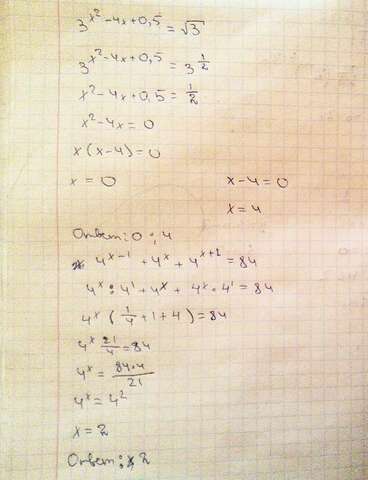 3^(x²-4x+0,5) = √3
3^(x²-4x+0,5) = 3^(1/2)
x²-4x+0,5 = 1/2
x²-4x = 0
x(x-4)=0
x = 0 x-4=0
x=4
Ответ: 0 ; 4
4^(x-1) + 4^x + 4^(x+1) = 84
4^x : 4¹ + 4^x + 4^x · 4¹ = 84
4^x (1/4 + 1 + 4) = 84
4^x 21/4 = 84
4^x = 84·4/21
4^x = 4²
x = 2
Ответ: 2